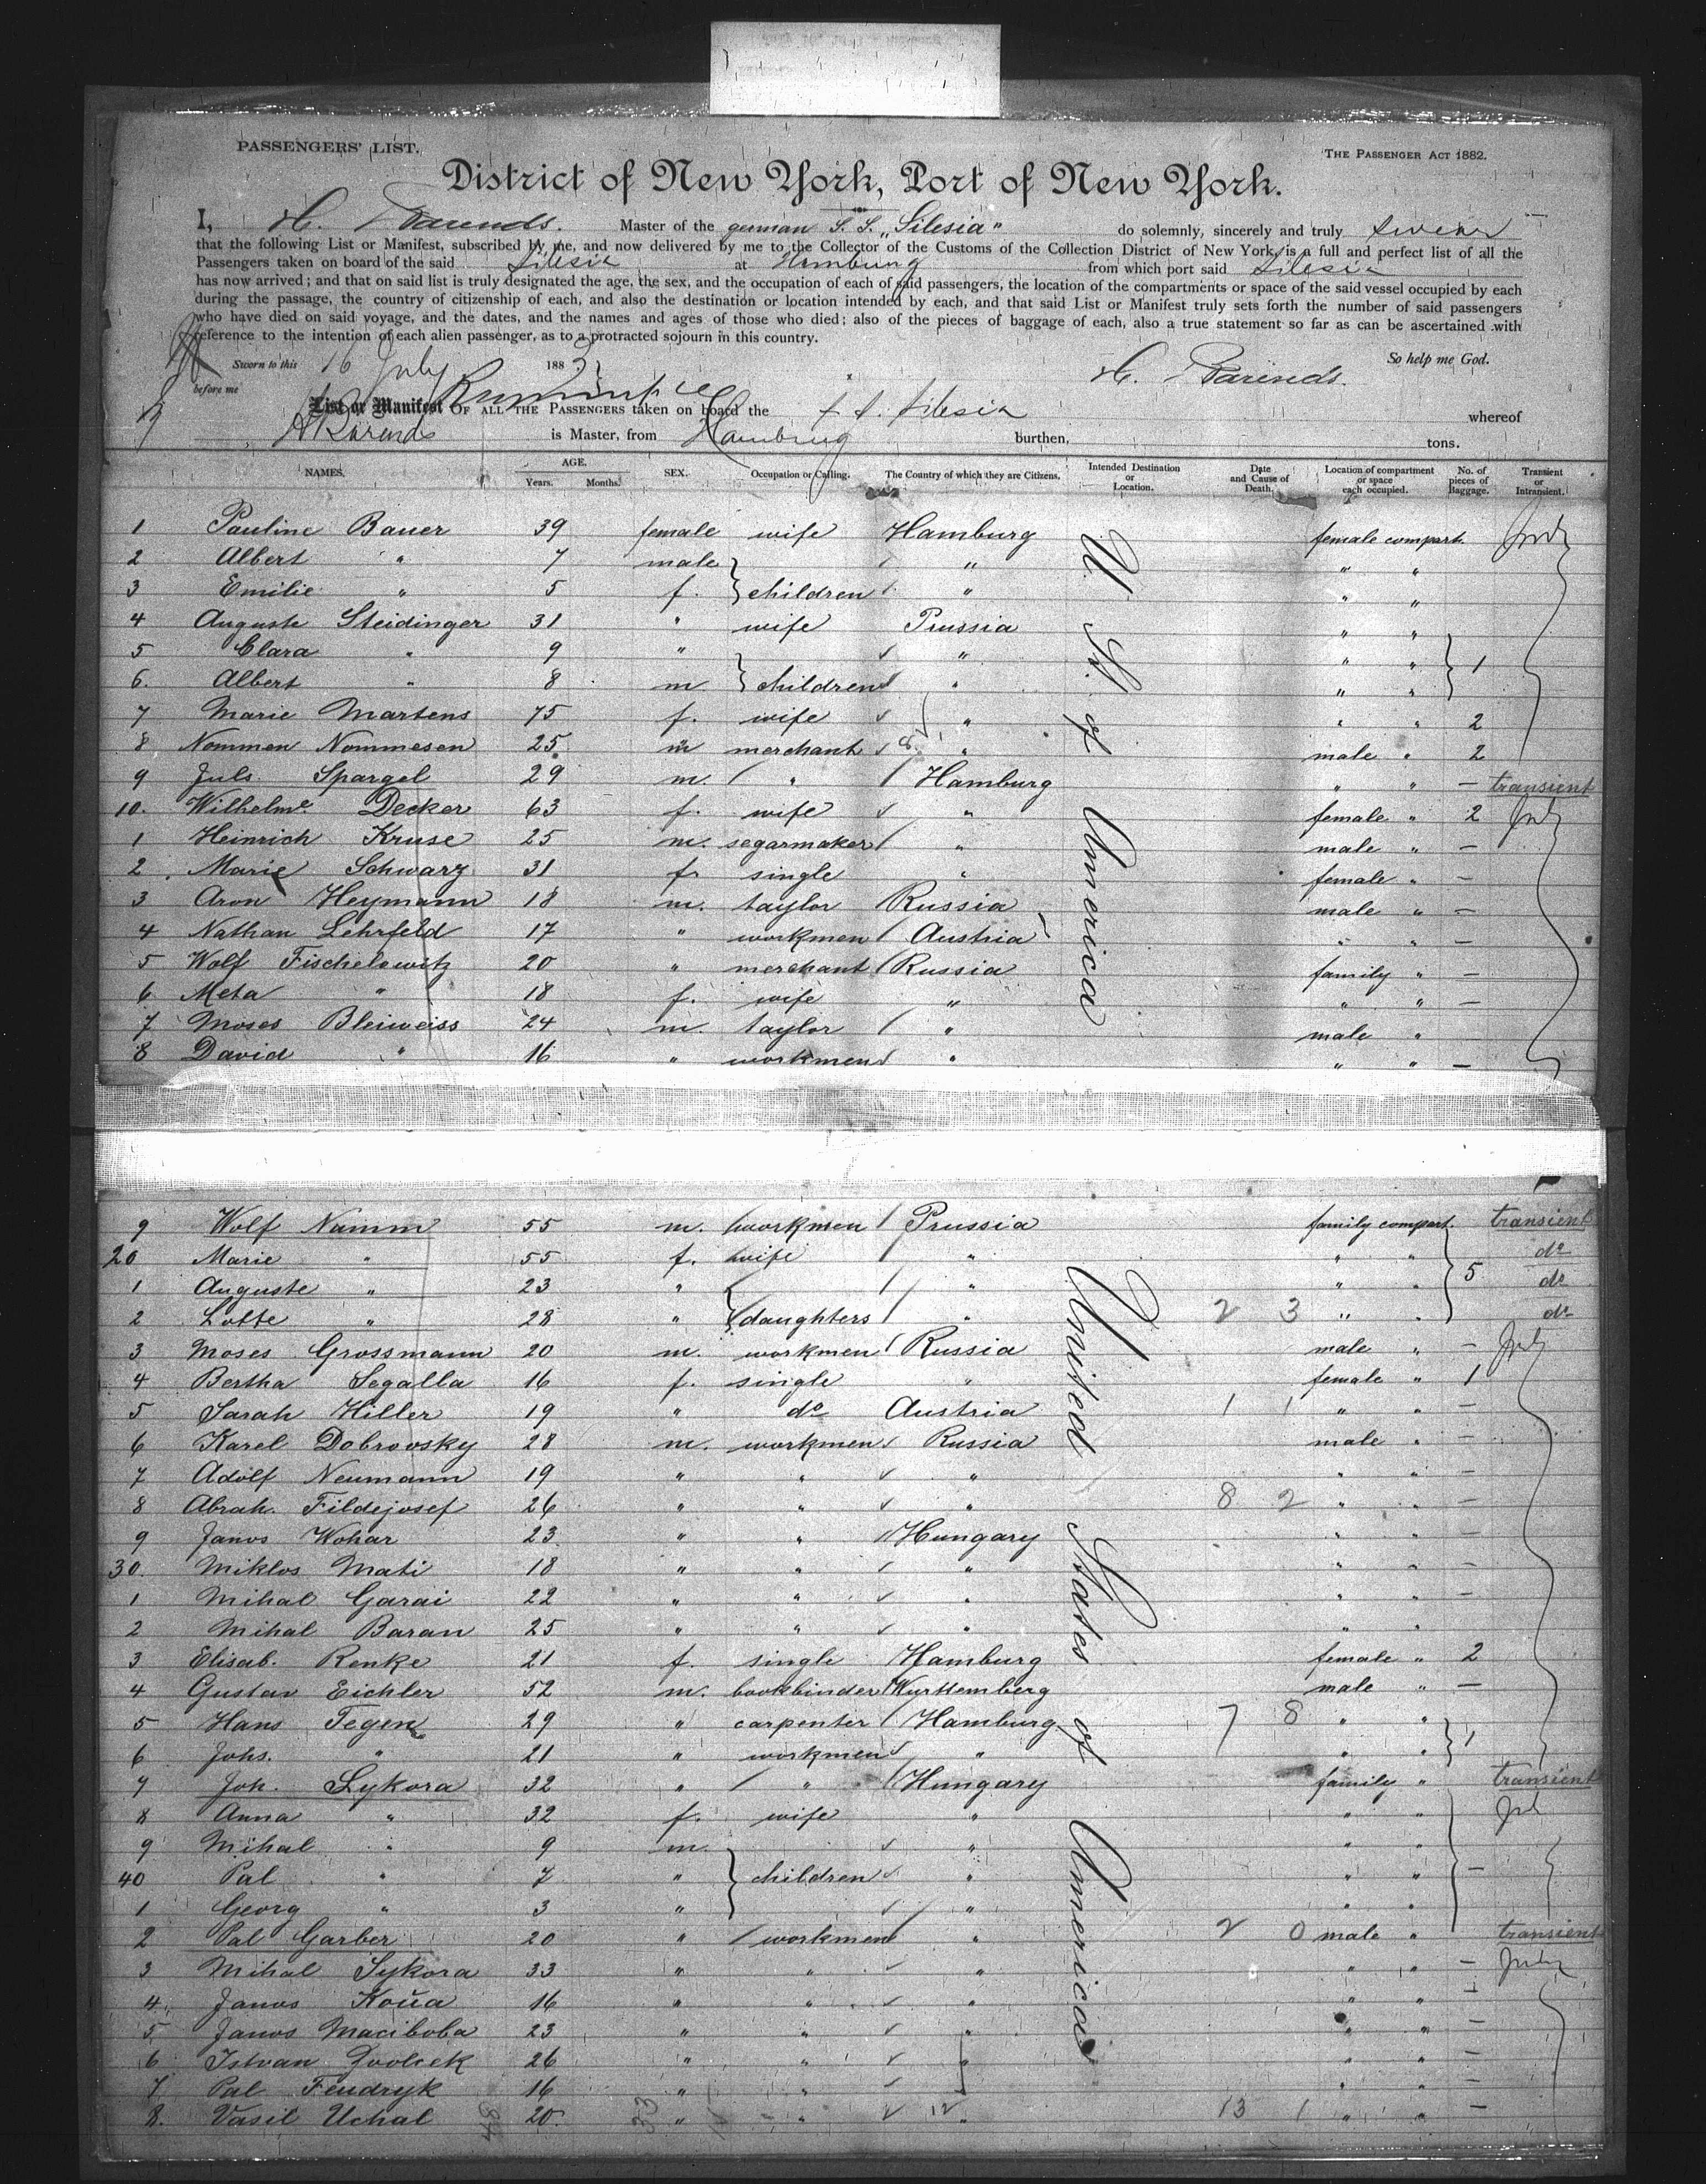 PASSENGERS' LIST.
THE PASSENGER ACT 1882.
District of New York, Port of New York.
I, H. Barends. Master of the german S.S. „Silesia" do solemnly, sincerely and truly swear
that the following List or Manifest, subscribed by me, and now delivered by me to the Collector of the Customs of the Collection District of New York, is a full and perfect list of all the
Passengers taken on board of the said Silesia at Hamburg from which port said Silesia
has now arrived; and that on said list is truly designated the age, the sex, and the occupation of each of said passengers, the location of the compartments or space of the said vessel occupied by each
during the passage, the country of citizenship of each, and also the destination or location intended by each, and that said List or Manifest truly sets forth the number of said passengers
who have died on said voyage, and the dates, and the names and ages of those who died; also of the pieces of baggage of each, also a true statement so far as can be ascertained with
reference to the intention of each alien passenger, as to a protracted sojourn in this country.
Sworn to this 16 July 1883 So help me God.
before me H. Barends.
List or Manifest OF ALL THE PASSENGERS taken on board the s. s. Silesia whereof
H Barends is Master, from Hamburg burthen, tons.
NAMES. AGE. Years. Months. SEX. Occupation or Calling. The Country of which they are Citizens. Intended Destination or Location. Date and Cause of Death. Location of compartment or space each occupied. No. of pieces of Baggage. Transient or Intransient.
1 Pauline Bauer 39 female wife Hamburg female compart.
2 Albert " 7 male " " "
3 Emilie " 5 f. children " " "
4 Auguste Steidinger 31 " wife Prussia " "
5 Clara " 9 " " " " 1
6. Albert " 8 m. children " " "
7 Marie Martens 75 f. wife " " " 2
8 Nommen Nommesen 25 m merchant " male " 2
9 Juls. Spargel 29 m. " Hamburg " " - transient
10. Wilhelme Decker 63 f. wife " female " 2
1 Heinrich Kruse 25 m. segarmaker " male " -
2 Marie Schwarz 31 f. single " female " -
3 Aron Heymann 18 m. taylor Russia male " -
4 Nathan Lehrfeld 17 " workmen Austria " " -
5 Wolf Fischelowitz 20 " merchant Russia family " -
6 Meta " 18 f. wife " " " -
7 Moses Bleiweiss 24 m. taylor " male "
8 David " 16 " workmen " " " -
U. St. of America
9 Wolf Namm 55 m. workmen Prussia family compart. transient
20 Marie " 55 f. wife " " " do
1 Auguste " 23 " " " " 5 do
2 Lotte " 28 " daughters " 2 3 " " do
3 Moses Grossmann 20 m. workmen Russia male " -
4 Bertha Segalla 16 f. single " female " 1
5 Sarah Hiller 19 " do Austria 1 1 " " -
6 Karel Dobrovsky 28 m. workmen Russia male " -
7 Adolf Neumann 19 " " " " " -
8 Abrah. Fildejosef 26 " " " 8 2 " " -
9 Janos Wohar 23 " " Hungary " " -
30. Miklos Mati 18 " " " " " -
1 Mihal Garai 22 " " " " " -
2 Mihal Baran 25 " " " " " -
3 Elisab. Renke 21 f. single Hamburg female " 2
4 Gustav Eichler 52 m. bookbinder Wurttemberg male " -
5 Hans Tegen 29 " carpenter Hamburg 7 8 " "
6 Johs. " 21 " workmen " " " 1
7 Joh. Sykora 32 " " Hungary family " transient
8 Anna " 32 f. wife " " "
9 Mihal " 9 m. " " "
40 Pal " 7 " children " " " -
1 Georg " 3 " " " "
2 Pal Garber 20 " workmen " 2 0 male " transient
3 Mihal Sykora 33 " " " " " -
4 Janos Koua 16 " " " " " -
5 Janos Maciboba 23 " " " " " -
6 Istvan 26 " " " " " -
7 Pal Fendryk 16 " " " " -
8. Vasil Uchal 20 " " 12 " 13 1 " " -
United States of America
48 33 15